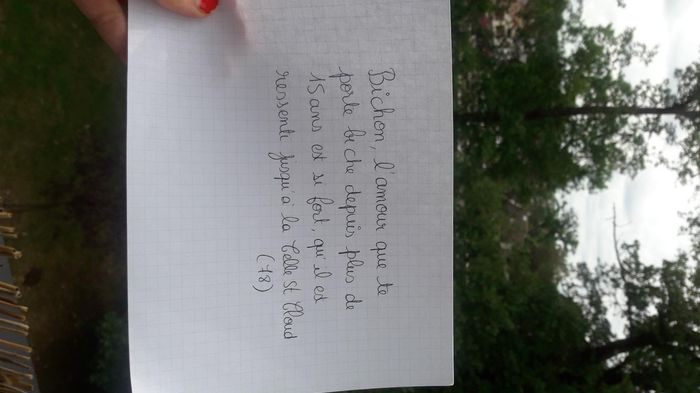 Bichon, l'amour que te
porte biche depuis plus de
15 ans est si fort, qu'il est
ressenti jusqu'a la Celle St Cloud
(78)